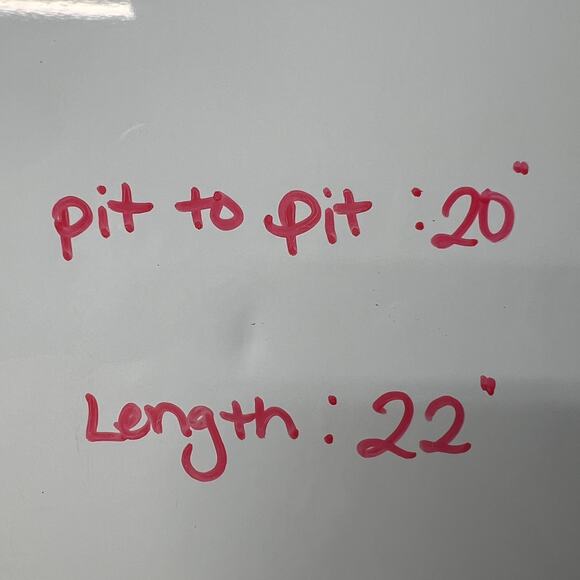 pit to pit : 20"
Length : 22"